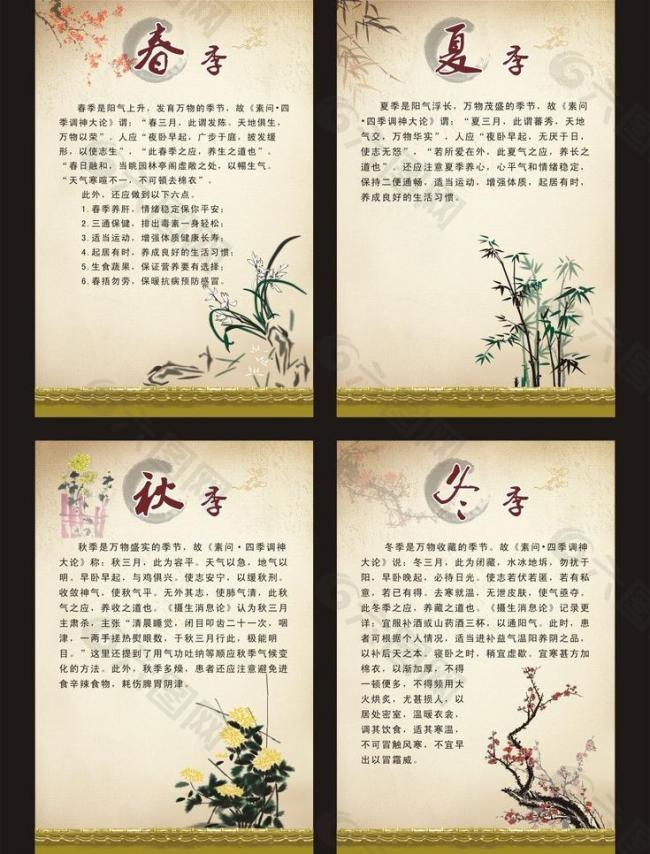 春季
春季是阳气上升，发育万物的季节，故《素问•四
季调神大论》谓：“春三月，此谓发陈。天地俱生，
万物以荣”。人应“夜卧早起，广步于庭，披发缓
形，以使志生”，“此春季之应，养生之道也”。
“春日融和，当眺园林亭阁虚敞之处，以暢生气。
“天气寒暄不一，不可顿去棉衣”。
此外，还应做到以下六点。
1.春季养肝，情绪稳定保你平安；
2.三通保健，排出毒素一身轻松；
3.适当运动，增强体质健康长寿；
4.起居有时，养成良好的生活习惯；
5.生食蔬果，保证营养要有选择；
6.春捂勿劳，保暖抗病预防感冒。
夏季
夏季是阳气浮长，万物茂盛的季节，故《素问
•四季调神大论》谓：“夏三月，此谓蕃秀，天地
气交，万物华实”，人应“夜卧早起，无厌于日，
使志无怒”，“若所爱在外，此夏气之应，养长之
道也”。还应注意夏季养心，心平气和情绪稳定，
保持二便通畅，适当运动，增强体质，起居有时，
养成良好的生活习惯。
秋季
秋季是万物盛实的季节，故《素问•四季调神
大论》称：秋三月，此为容平。天气以急，地气以
明。早卧早起，与鸡俱兴。使志安宁，以缓秋刑。
收敛神气，使秋气平。无外其志，使肺气清，此秋
气之应，养收之道也。《摄生消息论》认为秋三月
主肃杀，主张“清晨睡觉，闭目叩齿二十一次，咽
津，一两手搓热熨眼数，于秋三月行此，极能明
目。”这里还提到了用气功吐纳等顺应秋季气候变
化的方法。此外，秋季多燥，患者还应注意避免进
食辛辣食物，耗伤脾胃阴津。
冬季
冬季是万物收藏的季节。故《素问•四季调神
大论》说：冬三月，此为闭藏，水冰地坼，勿扰于
阳，早卧晚起，必待日光。使志若伏若匿，若有私
意，若已有得。去寒就温，无泄皮肤，使气亟夺。
此冬季之应，养藏之道也。《摄生消息论》记录更
详：宜服补酒或山药酒三杯，以通阳气。此时，患
者可根据个人情况，适当进补益气温阳养阴之品，
以补后天之本。寝卧之时，稍宜虚歇。宜寒甚方加
棉衣，以渐加厚，不得
一顿便多，不得频用大
火烘炙，尤甚损人，以
居处密室，温暖衣衾，
调其饮食，适其寒温，
不可冒触风寒，不宜早
出以冒霜威。